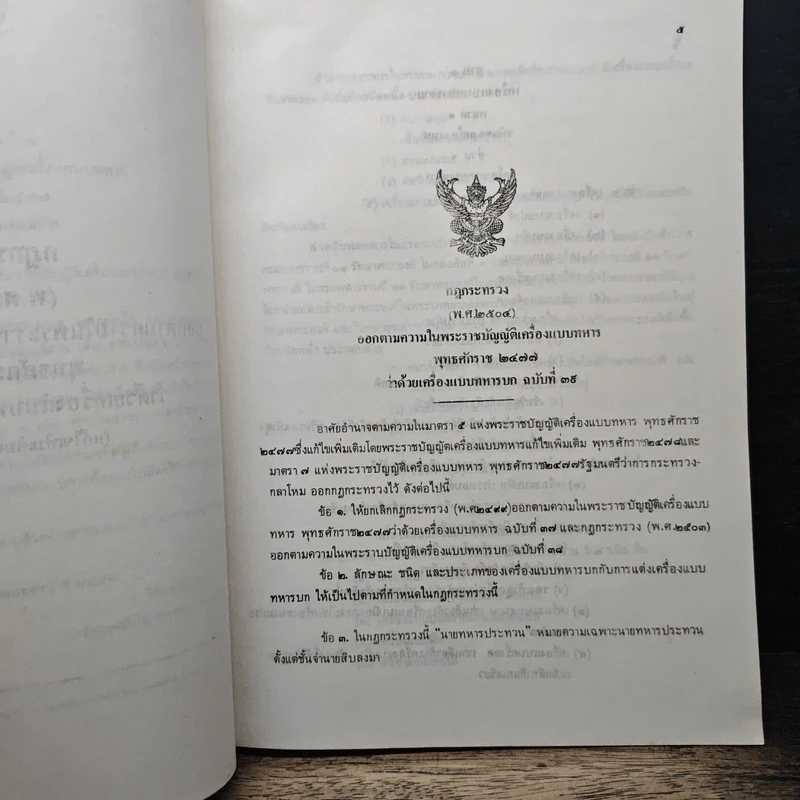 ๕
กฎกระทรวง
(พ.ศ.๒๕๐๔)
ออกตามความในพระราชบัญญัติเครื่องแบบทหาร
พุทธศักราช ๒๔๗๗
ว่าด้วยเครื่องแบบทหารบก ฉบับที่ ๓๙
อาศัยอำนาจตามความในมาตรา ๕ แห่งพระราชบัญญัติเครื่องแบบทหาร พุทธศักราช
๒๔๗๗ซึ่งแก้ไขเพิ่มเติมโดยพระราชบัญญัติเครื่องแบบทหารแก้ไขเพิ่มเติม พุทธศักราช๒๔๗๘และ
มาตรา ๗ แห่งพระราชบัญญัติเครื่องแบบทหาร พุทธศักราช๒๔๗๗รัฐมนตรีว่าการกระทรวง-
กลาโหม ออกกฎกระทรวงไว้ ดังต่อไปนี้
ข้อ ๑. ให้ยกเลิกกฎกระทรวง (พ.ศ๒๔๙๙)ออกตามความในพระราชบัญญัติเครื่องแบบ
ทหาร พุทธศักราช๒๔๗๗ว่าด้วยเครื่องแบบทหาร ฉบับที่ ๓๗ และกฎกระทรวง (พ.ศ.๒๕๐๓)
ออกตามความในพระราบบัญญัติเครื่องแบบทหารบก ฉบับที่ ๓๘
ข้อ ๒. ลักษณะ ชนิด และประเภทของเครื่องแบบทหารบกกับการแต่งเครื่องแบบ
ทหารบก ให้เป็นไปตามที่กำหนดในกฎกระทรวงนี้
ข้อ ๓. ในกฎกระทรวงนี้ "นายทหารประทวน" หมายความเฉพาะนายทหารประทวน
ตั้งแต่ชั้นจ่านายสิบลงมา